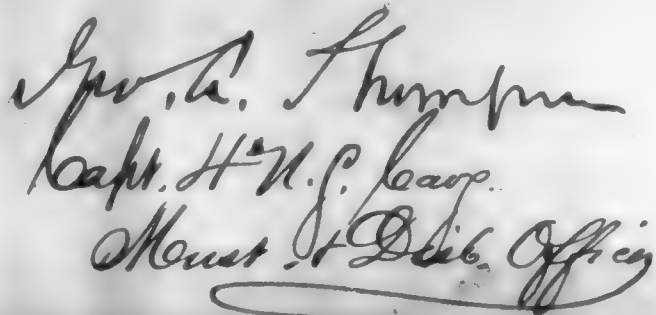 Jno. A. Thompson
Capt. 4" U.S. Cavy.
Must. & Disb. Officer